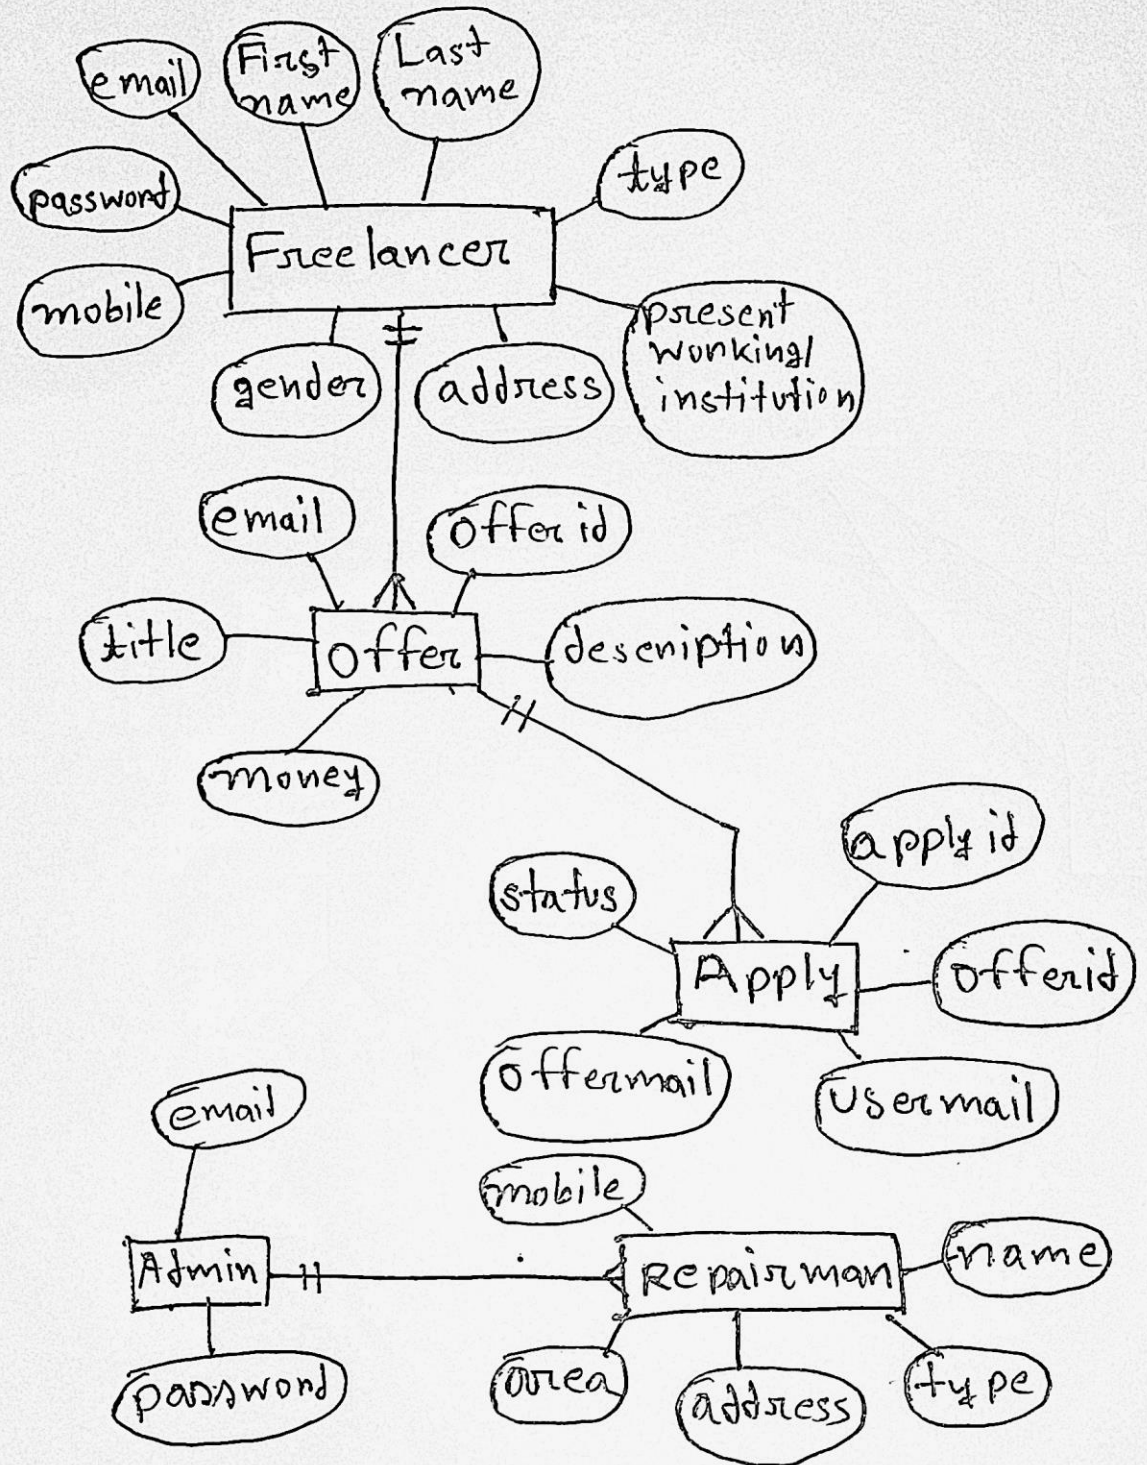 email
First
name
Last
name
password
type
Freelancer
mobile
present
working/
institution
gender
address
email
offer id
title
offer
description
money
apply id
status
Apply
offerid
offermail
usermail
email
mobile
Admin
Repairman
name
password
area
address
type